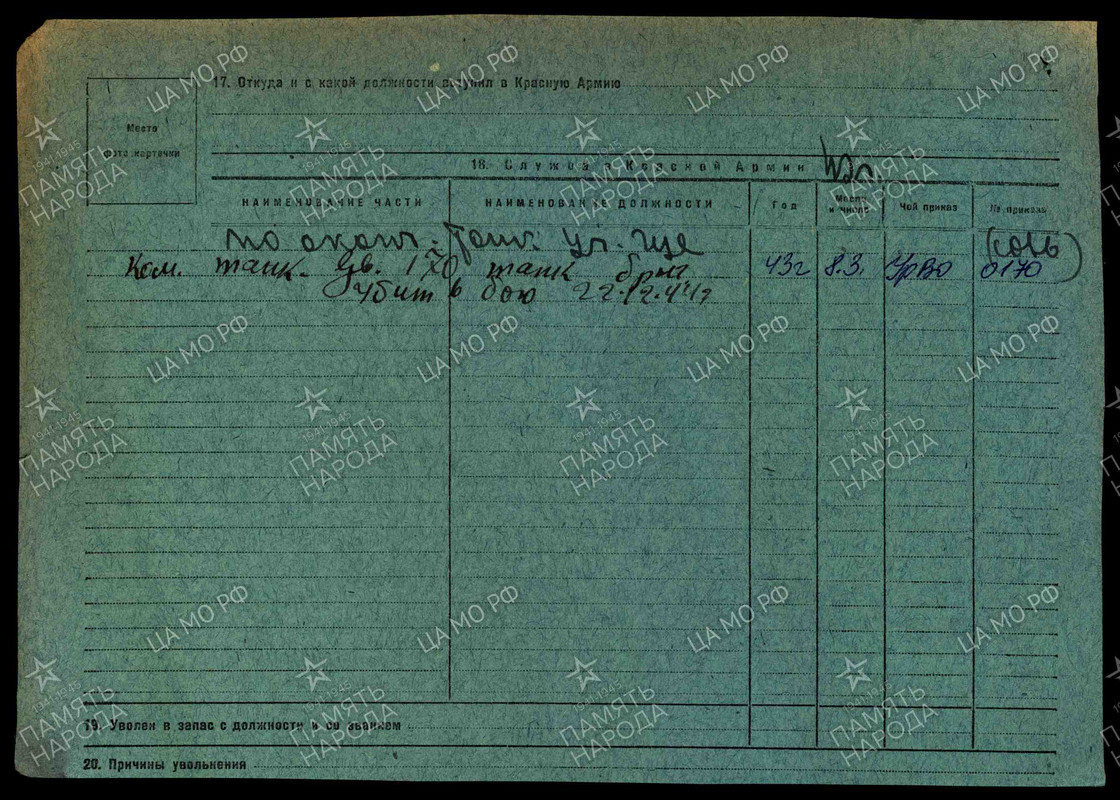 17. Откуда и с какой должности вступил в Красную Армию
Место
фото карточки
18. Служба в Красной Армии
НАИМЕНОВАНИЕ ЧАСТИ НАИМЕНОВАНИЕ ДОЛЖНОСТИ Год Месяц и число Чей приказ № приказа
по оконч. уч-ще
Ком. танк. Гв. 170 танк бриг 43г 8.3. УрВО 0170
Убит в бою 22.12.44г
19. Уволен в запас с должности и со званием
20. Причины увольнения
ЦА МО РФ
1941-1945
ПАМЯТЬ
НАРОДА